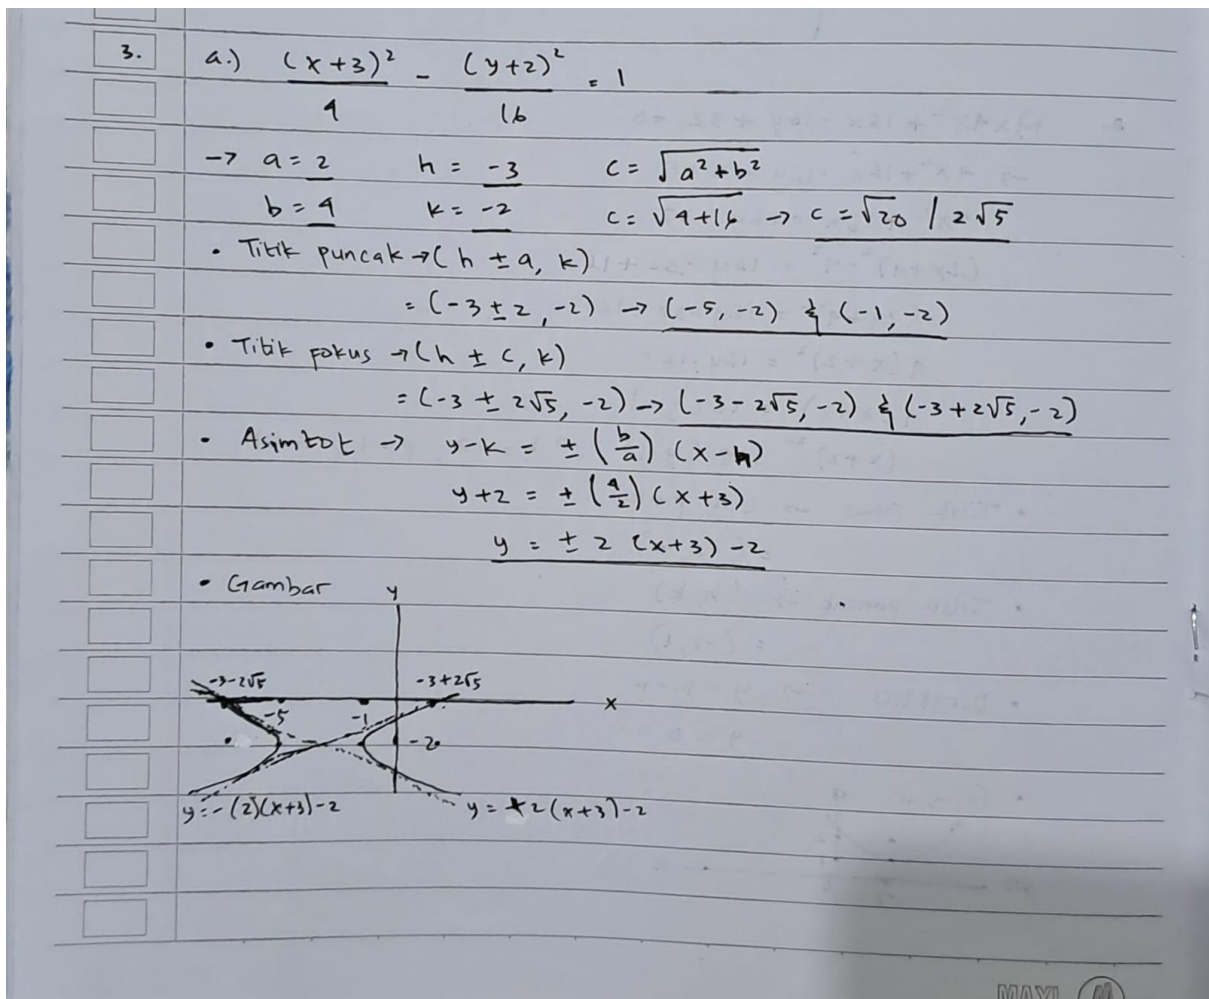 3. a.) (x+3)²/4 - (y+2)²/16 = 1
→ a = 2 h = -3 c = √(a²+b²)
b = 4 k = -2 c = √(4+16) → c = √20 / 2√5
• Titik puncak → (h ± a, k)
= (-3 ± 2, -2) → (-5, -2) & (-1, -2)
• Titik fokus → (h ± c, k)
= (-3 ± 2√5, -2) → (-3 - 2√5, -2) & (-3 + 2√5, -2)
• Asimtot → y-k = ± (b/a) (x-h)
y+2 = ± (4/2) (x+3)
y = ± 2 (x+3) - 2
• Gambar y
-3-2√5 -3+2√5
-5 -1 x
-2
y = -(2)(x+3)-2 y = +2(x+3)-2
MAXI